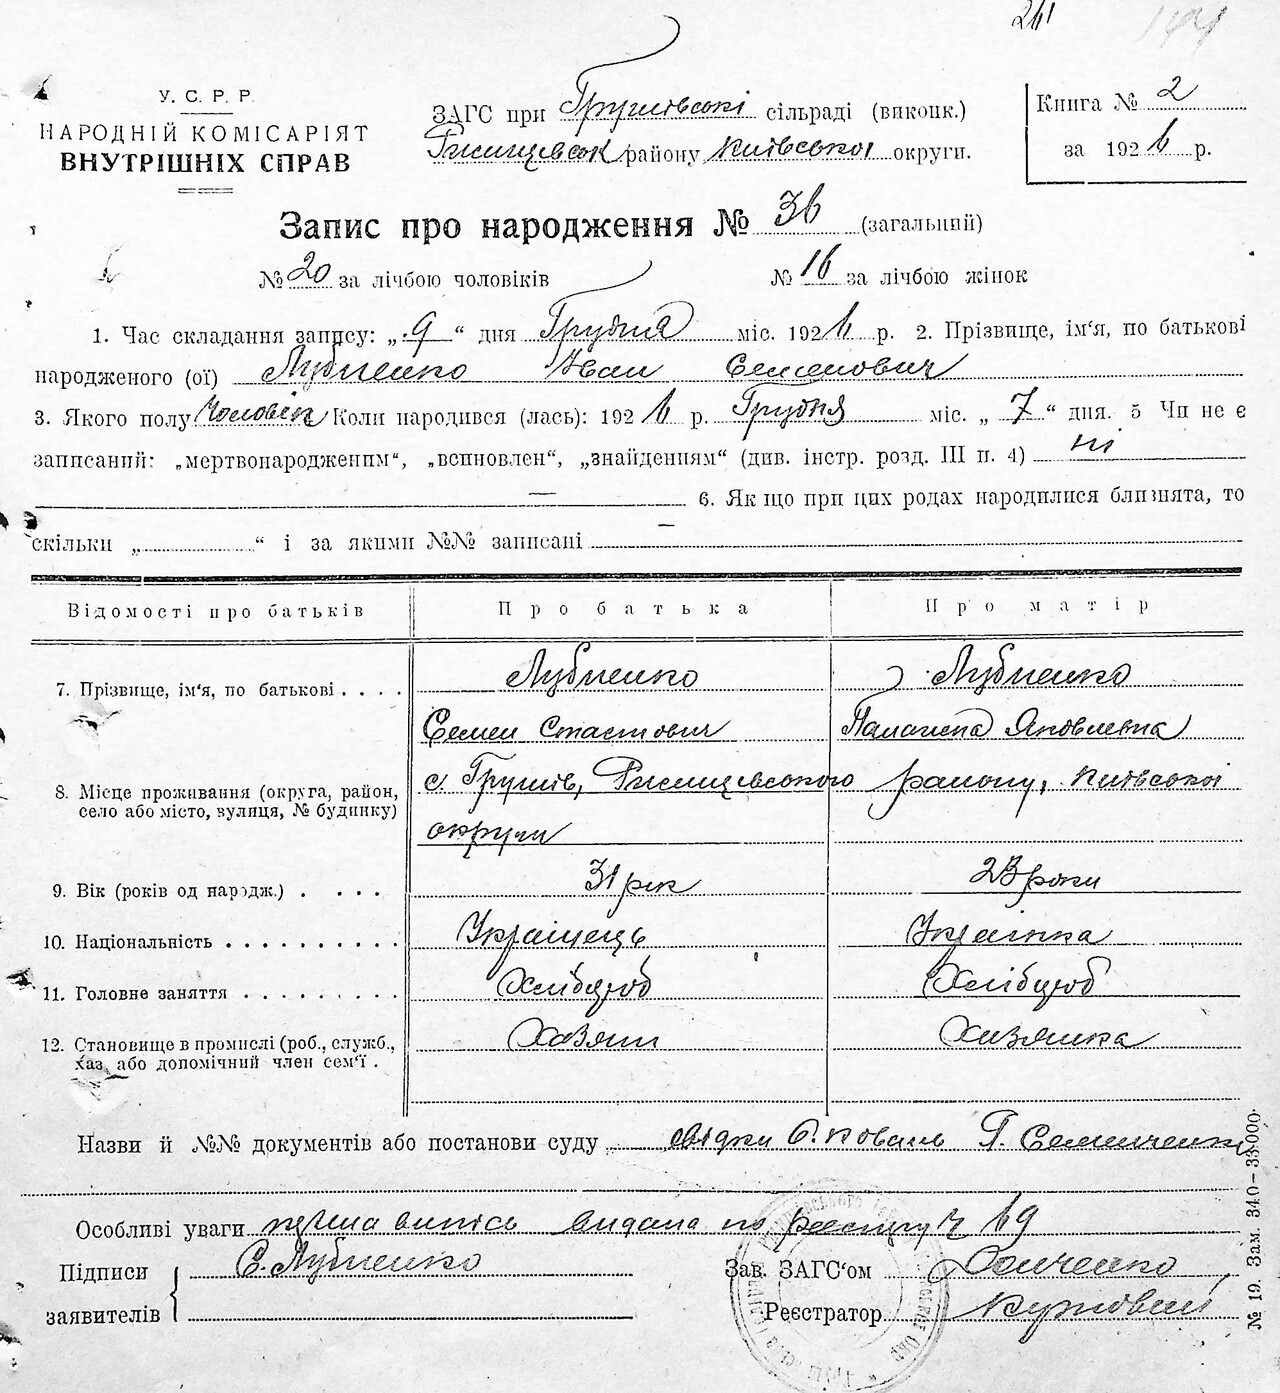 У. С. Р. Р.
НАРОДНІЙ КОМІСАРІЯТ
ВНУТРІШНІХ СПРАВ
ЗАГС при Грушівські сільраді (виконк.)
Ржищевськ району Київської округи.
Книга № 2
за 1926 р.
Запис про народження № 36 (загальний)
№ 20 за лічбою чоловіків № 16 за лічбою жінок
1. Час складання запису: „9“ дня Грудня міс. 1926 р. 2. Прізвище, ім‘я, по батькові
народженого (ої) Лубненко Іван Семенович
3. Якого полу Чоловік Коли народився (лась): 1926 р. Грудня міс. „7“ дня. 5 Чи не є
записаний: „мертвонародженим“, „всиновлен“, „знайденням“ (див. інстр. розд. III п. 4) ні
— 6. Як що при цих родах народилися близнята, то
скільки „ “ і за якими №№ записані —
Відомості про батьків Про батька Про матір
7. Прізвище, ім‘я, по батькові . . . . Лубненко Лубненко
Семен Яковлевна
8. Місце проживання (округа, район, село або місто, вулиця, № будинку) с. Грушів, Ржищевського району, Київської
округи
9. Вік (років од народж.) . . . . 31 рік 23 роки
10. Національність . . . . . . . . . . Українець Українка
11. Головне заняття . . . . . . . . . Хлібороб Хлібороб
12. Становище в промислі (роб., служб., хаз. або допомічний член сем‘ї . Хазяин Хазяйка
Назви й №№ документів або постанови суду свідки О. Коваль Г. Семиченко
Особливі уваги перша випісь видана по реєстру Ч 69
Підписи
заявителів
С. Лубненко
Зав. ЗАГС‘ом
Реєстратор
№ 19. Зам. 340 – 33.000.